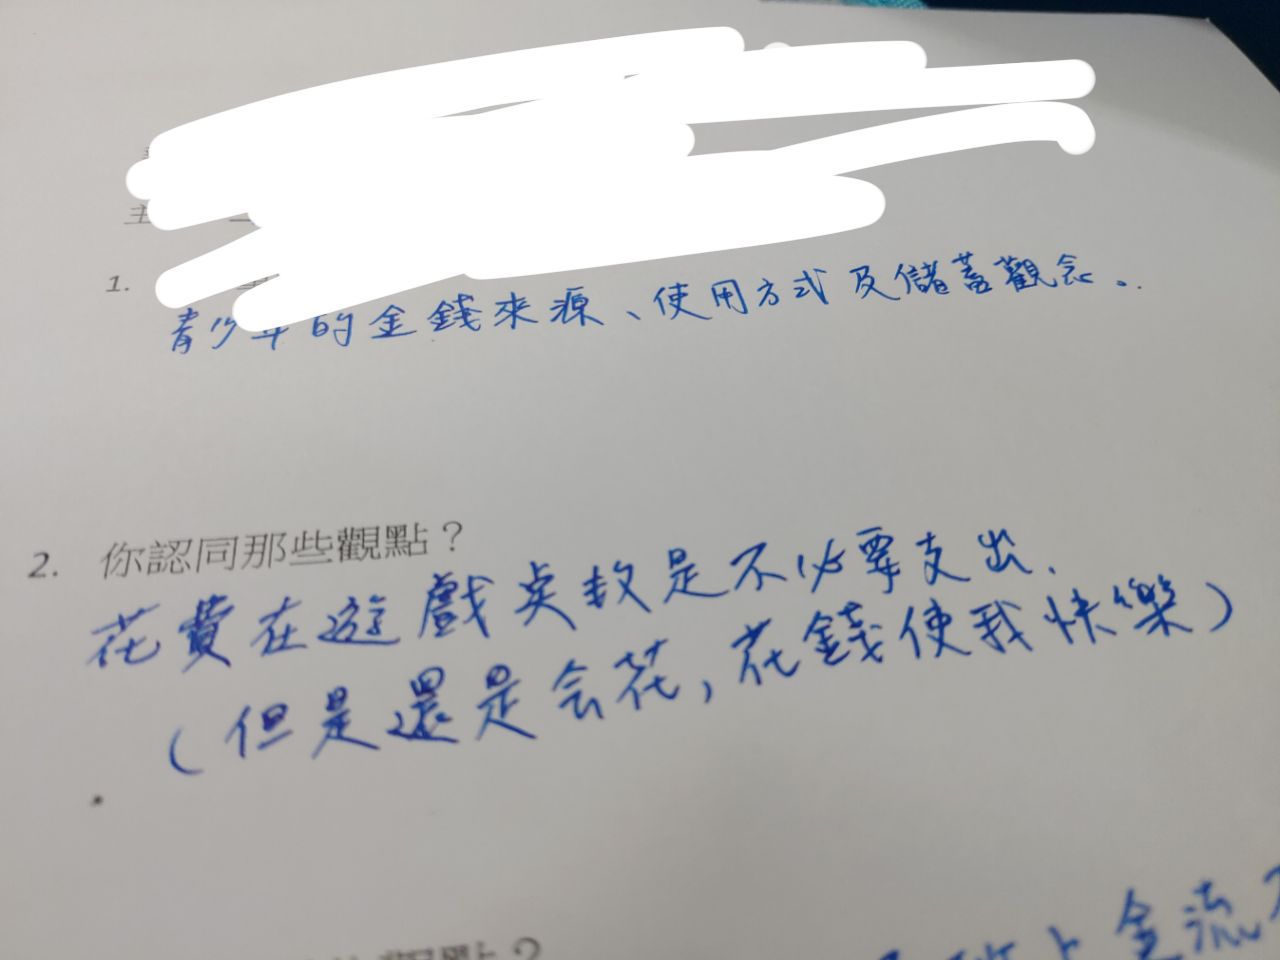 1.
青少年的金錢來源、使用方式及儲蓄觀念。
2. 你認同那些觀點？
花費在遊戲点数是不必要支出.
（但是還是会花，花錢使我快樂）
觀點？
上金流